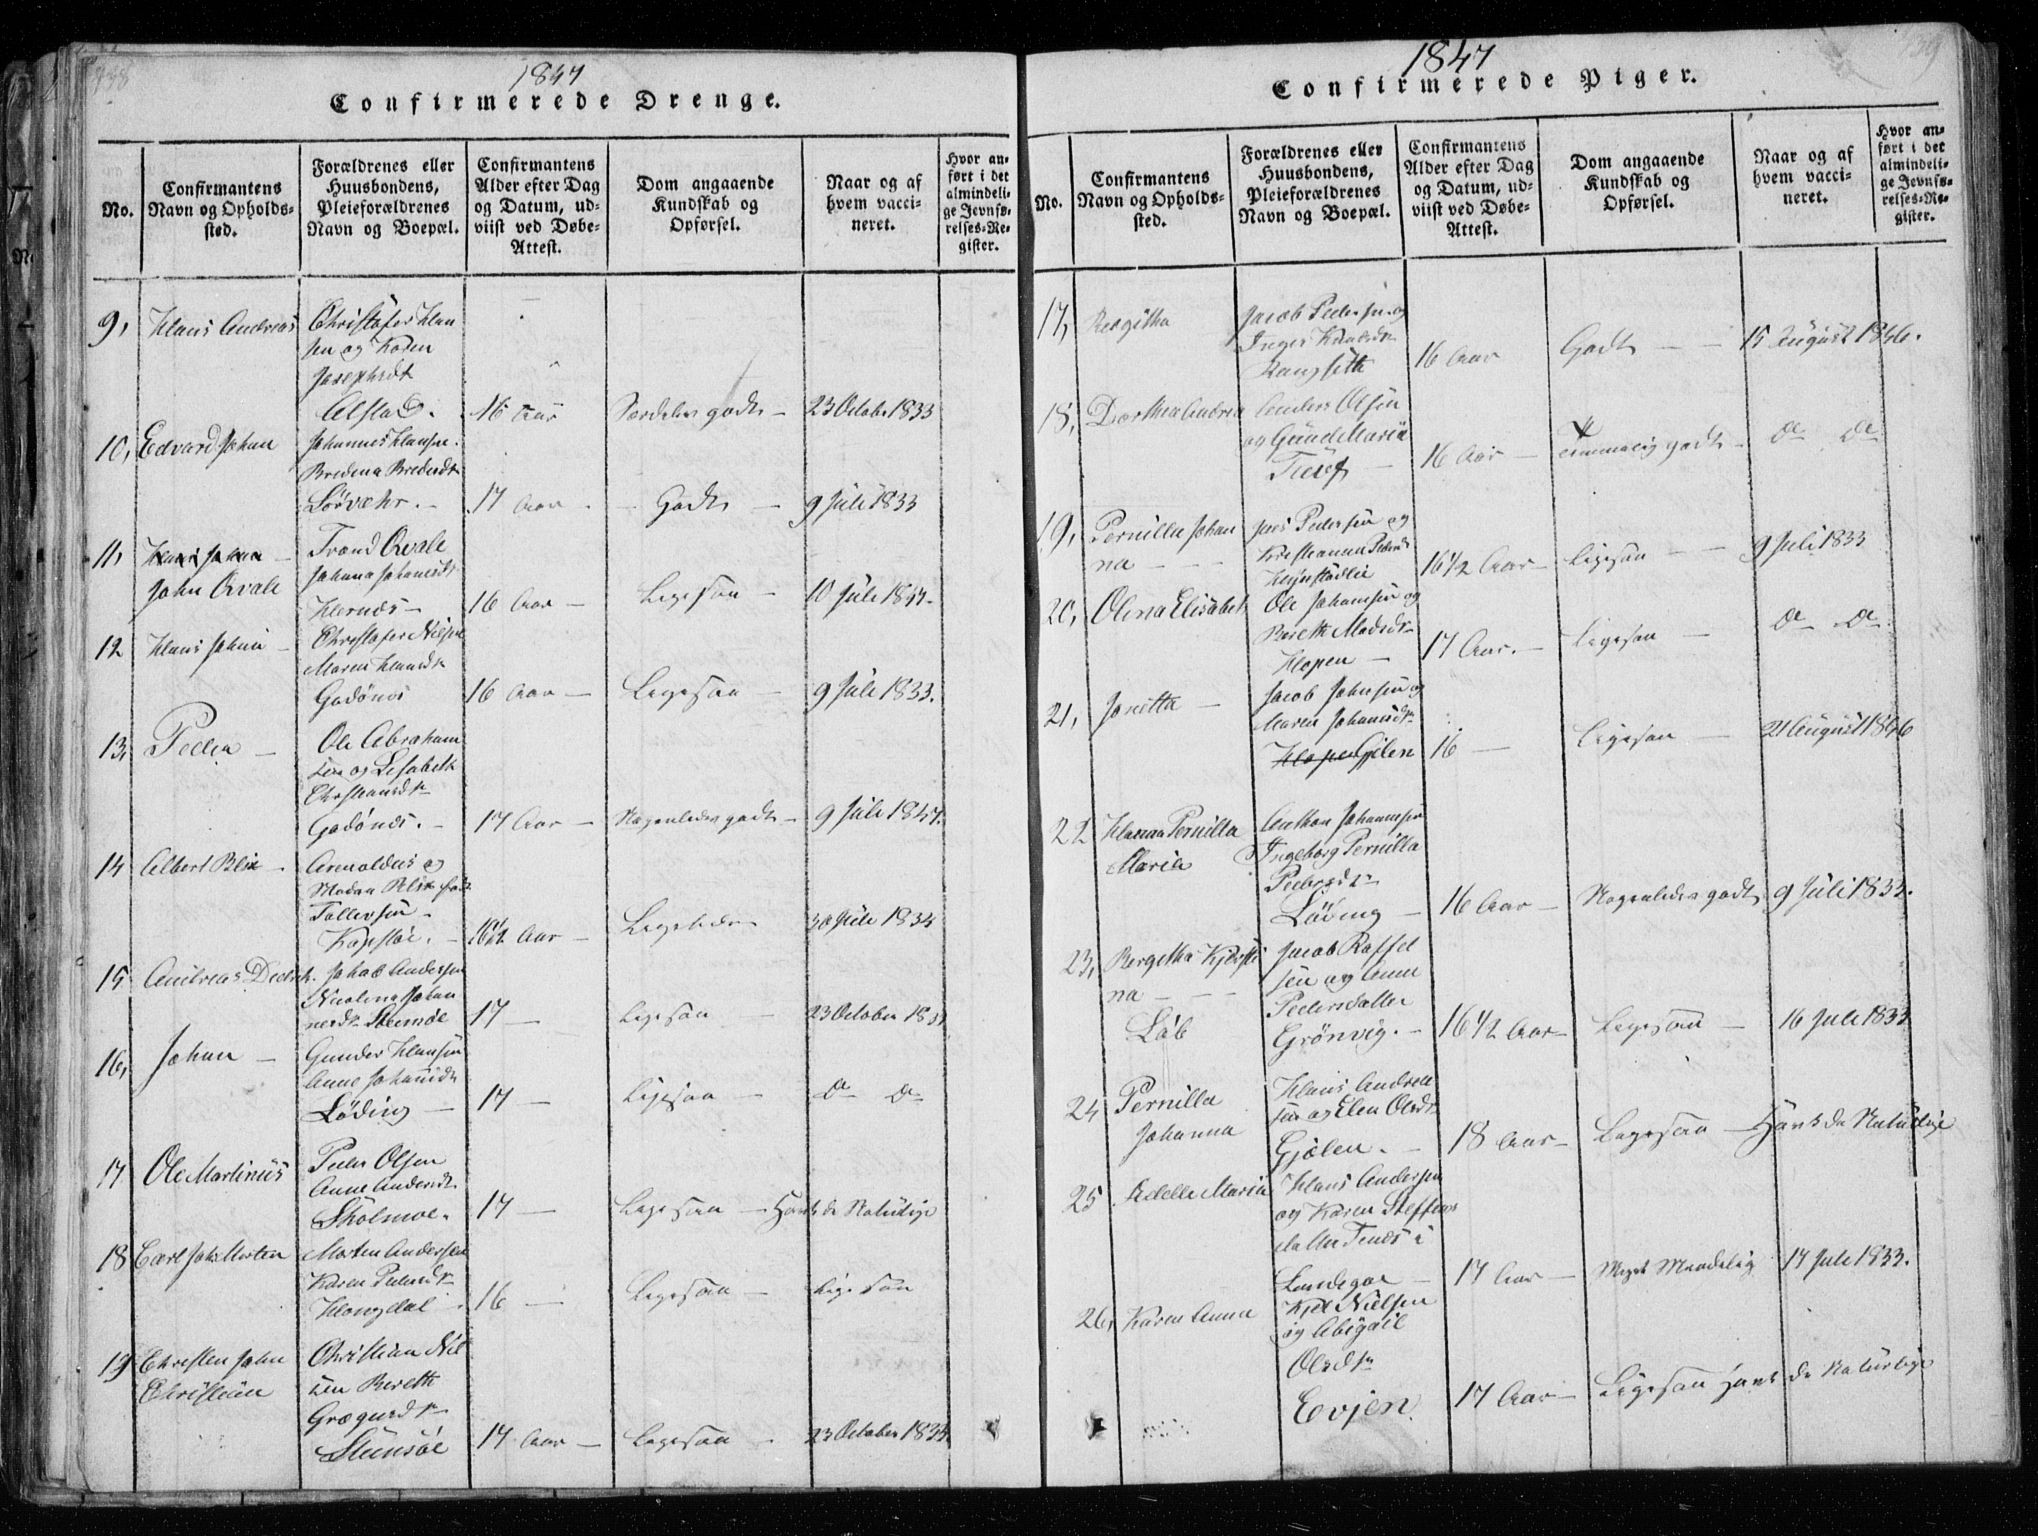 1847
Confirmerede Drenge.
No.
Confirmantens
Navn og Opholds-
sted.
Forældrenes eller
Huusbondens,
Pleieforældrenes
Navn og Boepæl.
Confirmantens
Alder efter Dag
og Datum, ud-
viist ved Døbe-
Attest.
Dom angaaende
Kundskab og
Opførsel.
Naar og af
hvem vacci-
neret.
Hvor an-
ført i det
almindeli-
ge Jevnfø-
relses-Re-
gister.
9, Hans Andreas
Christofer Han
sen og Karen
Josephsdt
Alstad. 16 Aar Serdeles godt - 23 Octobr 1833
10, Edvard Johan
Johannes Hansen
Bredena
Lörvehr. - 17 Aar - Godt - 9 Juli 1833
11,
John Qvale
Trond Qvale
Johana Johansdt
Hernes - 16 Aar - Ligesaa - 10 Juli 1844.
12 Hans Johan -
Christofer Nilsen
Maren Hansdt
Godönes 16 Aar - Ligesaa - 9 Juli 1833.
13, Peder -
Ole Abraham
sen og Lisabeth
Christiansdt
Godönes. - 17 Aar - Nogenledes godt - 9 Juli 1847.
14 Albert Blix -
Arnoldus og
Madam Blix
Tollevsen -
16 1/2 Aar - Ligeledes 30 Juli 1834
15 Andreas Dedrik.
Jakob Andersen
Nicolina Johan
nesdt 17 - Ligesaa - 23 October 18
16, Johan -
Gunder Hansen
Anne Johansdt
Löding - 17 - Ligesaa - do do
17 Ole Martinus
Peder Olsen
Anne Andersdt
Skolmoe. 17 - Ligesaa - Havt de Natürlige
18 Carl Joh. Morten
Morten Andersen
Karen Pedersdt
Hongdal 16 - Ligesaa - Ligesaa
19 Christen John
Christian
Christian Nil
sen Bereth
Grægersdt
17 Aar - Ligesaa - 23 October 1833.
1847
Confirmerede Piger.
No.
Confirmantens
Navn og Opholds-
sted.
Forældrenes eller
Huusbondens,
Pleieforældrenes
Navn og Boepæl.
Confirmantens
Alder efter Dag
og Datum, ud-
viist ved Døbe-
Attest.
Dom angaaende
Kundskab og
Opførsel.
Naar og af
hvem vacci-
neret.
Hvor an-
ført i det
almindeli-
ge Jevnfø-
relses-Re-
gister.
17, Bergitha
Jacob Pedersen og
Inger Knudsdt
16 Aar Godt - - 15 August 1846.
18, Dorthea Andrea
Anders Olsen
og Gunelmaria
16 Aar - temmelig godt - do do
19, Pernilla Johan
na - - -
Jens Pedersen og
Kristianna Pedersdt
16 1/2 Aar - Ligesaa - - 9 Juli 1833
20, Olena Elisabet
Ole Johansen og
Bereth Madsdt
Hopen - 17 Aar. - Ligesaa - do do
21, Jonetta -
Jacob Johnsen og
Maren Johansdt
Gjelen 16 - Ligesaa - 21 August 1846
22 Hanna Pernilla
Maria
Anthon Johannsen
Ingeborg Pernilla
Pedersdt
Löding - 16 Aar - Nogenledes godt 9 Juli 1833.
23, Bergitha Kjersti
na - - -
Löb
Jacob Raffel
sen og Anne
Pedersdatter
Grönvig. - 16 1/2 Aar - Ligesaa - 16 Juli 1833
24 Pernilla
Johanna
Hans Andrea
sen og Elen Olsdt
Gjælen. - 18 Aar - Ligesaa - Havt de Naturlige
25 Adelle Maria
Hans Andersen
og Karen Steffens
17 Aar - Meget Maadelig 17 Juli 1833.
26, Karen Anna
Kjel Nielsen
og Abigael
Olsdt
Evjen. 17 Aar - Ligesaa Havt de Naturlige